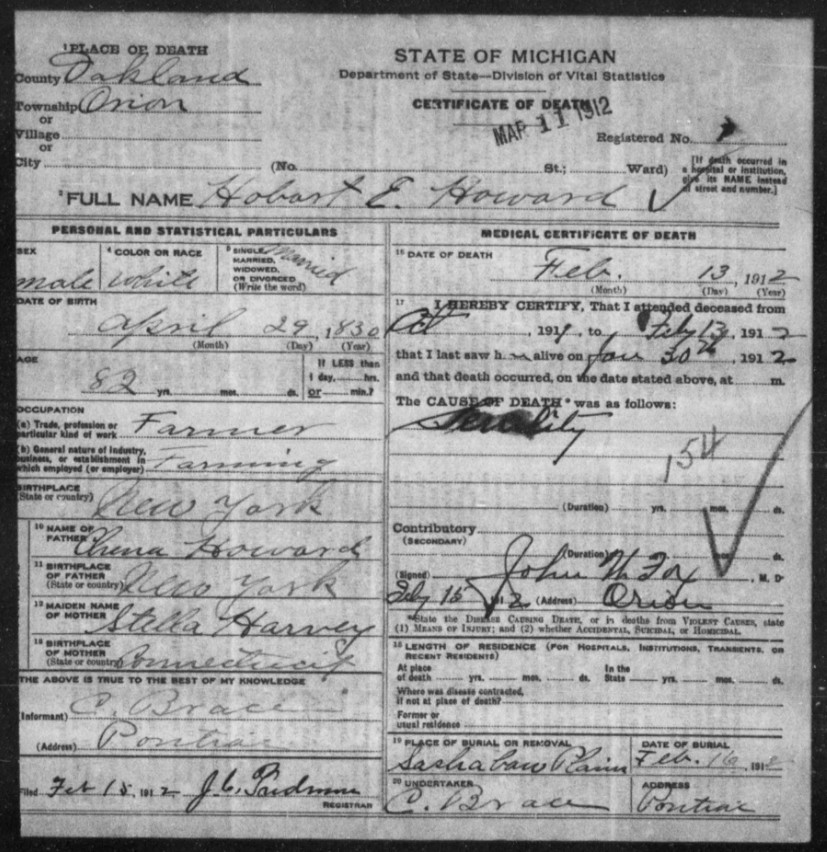 ¹PLACE OF DEATH
County Oakland
Township Orion
or
Village
or
City
STATE OF MICHIGAN
Department of State—Division of Vital Statistics
CERTIFICATE OF DEATH
MAR 11 1912
Registered No.
(No. St.; Ward)
[If death occurred in a hospital or institution, give its NAME instead of street and number.]
²FULL NAME Hobart E. Howard
PERSONAL AND STATISTICAL PARTICULARS
SEX male
⁴ COLOR OR RACE white
⁵ SINGLE, MARRIED, WIDOWED, OR DIVORCED (Write the word) Married
DATE OF BIRTH
April 29, 1830
(Month) (Day) (Year)
AGE
82 yrs. mos. ds.
If LESS than 1 day, hrs. or min.?
OCCUPATION
(a) Trade, profession or particular kind of work Farmer
(b) General nature of industry, business, or establishment in which employed (or employer) Farming
BIRTHPLACE (State or country) New York
¹⁰ NAME OF FATHER Howard
¹¹ BIRTHPLACE OF FATHER (State or country) New York
¹² MAIDEN NAME OF MOTHER Stella Harvey
¹³ BIRTHPLACE OF MOTHER (State or country) Connecticut
THE ABOVE IS TRUE TO THE BEST OF MY KNOWLEDGE
Informant) C. Brace
(Address) Pontiac
Filed Feb 15, 1912 J. C.
REGISTRAR
MEDICAL CERTIFICATE OF DEATH
¹⁶ DATE OF DEATH
Feb. 13, 1912
(Month) (Day) (Year)
¹⁷ I HEREBY CERTIFY, That I attended deceased from
Oct, 191, to Feby 13, 1912
that I last saw h alive on Jan 30th, 1912
and that death occurred, on the date stated above, at m.
The CAUSE OF DEATH* was as follows:
Senility
154
(Duration) yrs. mos. ds.
Contributory
(SECONDARY)
(Duration) mos. ds.
(Signed) John M Fox, M. D.
Feby 15 1912 (Address) Orion
*State the DISEASE CAUSING DEATH, or in deaths from VIOLENT CAUSES, state
(1) MEANS OF INJURY; and (2) whether ACCIDENTAL, SUICIDAL, or HOMICIDAL.
¹⁸ LENGTH OF RESIDENCE (FOR HOSPITALS, INSTITUTIONS, TRANSIENTS, OR RECENT RESIDENTS)
At place of death yrs. mos. ds. In the State yrs. mos. ds.
Where was disease contracted, if not at place of death?
Former or usual residence
¹⁹ PLACE OF BURIAL OR REMOVAL DATE OF BURIAL
Sashabaw Plains Feb. 16, 191
²⁰ UNDERTAKER ADDRESS
C. Brace Pontiac